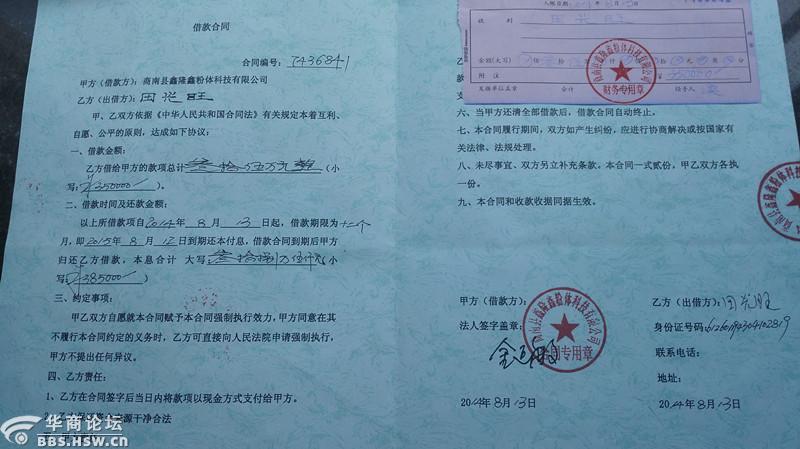 借款合同
合同编号：7436841
甲方（借款方）：商南县鑫隆鑫粉体科技有限公司
乙方（出借方）：
甲、乙双方依据《中华人民共和国合同法》有关规定本着互利、
自愿、公平的原则，达成如下协议：
一、借款金额：
乙方借给甲方的款项总计叁拾伍万元整（小
写：¥350000）。
二、借款时间及还款金额：
以上所借款项自2014年8月13日起，借款期限为十二个
月，即2015年8月12日到期还本付息，借款合同到期后甲方
归还乙方借款，本息合计 大写：叁拾捌万伍仟元（小
写：¥385000）
三、约定事项：
甲乙双方自愿就本合同赋予本合同强制执行效力，甲方同意在其
不履行本合同约定的义务时，乙方可直接向人民法院申请强制执行，
甲方不提出任何异议。
四、乙方责任：
1、乙方在合同签字后当日内将款项以现金方式支付给甲方。
源干净合法
收到
金额(大写)
附注
¥350000
发据单位盖章
经手人
商南县鑫隆鑫粉体科技有限公司
财务专用章
六、当甲方还清全部借款后，借款合同自动终止。
七、本合同履行期间，双方如产生纠纷，应进行协商解决或按国家有
关法律、法规处理。
八、未尽事宜、双方另立补充条款。本合同一式贰份，甲乙双方各执
一份。
九、本合同和收款收据同据生效。
甲方（借款方）：
法人签字盖章：
商南县鑫隆鑫粉体科技有限公司
合同专用章
2014年8月13日
乙方（出借方）：
身份证号码：
联系电话：
地址：
2014年8月13日
华商论坛
BBS.HSW.CN